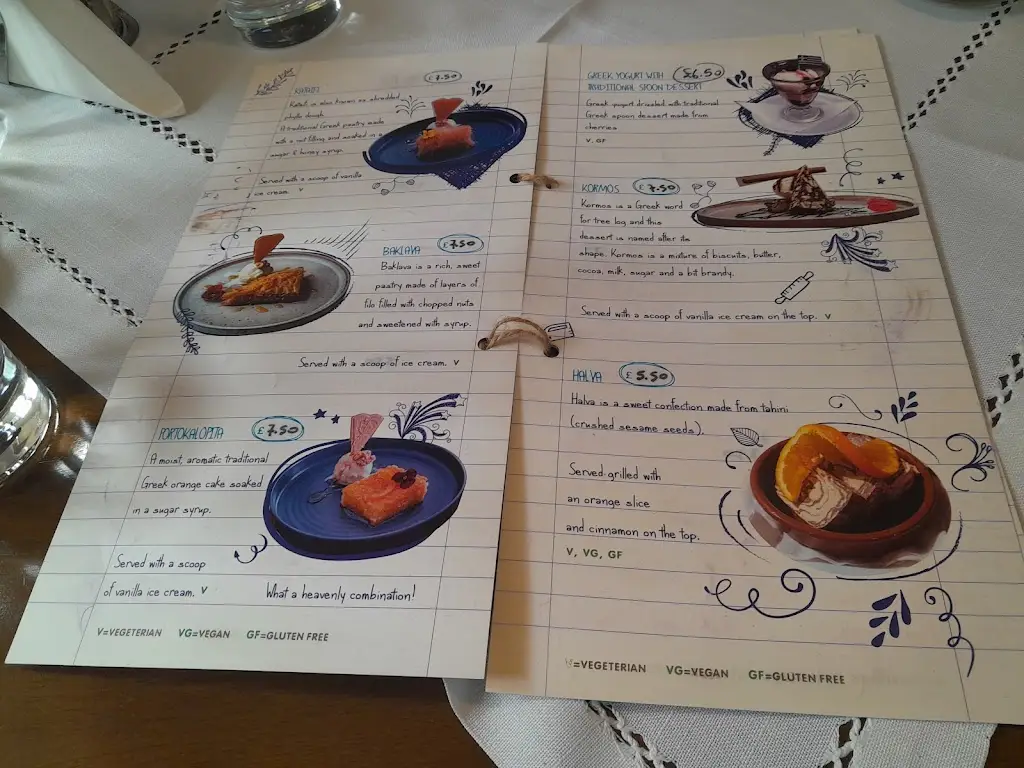 KATAIFI
£7.50
Kataifi is also known as shredded
phyllo dough.
A traditional Greek pastry made
with a nut filling and soaked in a
sugar & honey syrup.
Served with a scoop of vanilla
ice cream. V
BAKLAVA £7.50
Baklava is a rich, sweet
pastry made of layers of
filo filled with chopped nuts
and sweetened with syrup.
Served with a scoop of ice cream. V
PORTOKALOPITA £7.50
A moist, aromatic traditional
Greek orange cake soaked
in a sugar syrup.
Served with a scoop
of vanilla ice cream. V
What a heavenly combination!
V=VEGETERIAN VG=VEGAN GF=GLUTEN FREE
GREEK YOGURT WITH £6.50
TRADITIONAL SPOON DESSERT
Greek yogurt drizzled with traditional
Greek spoon dessert made from
cherries
V, GF
KORMOS £7.50
Kormos is a Greek word
for tree log and this
dessert is named after its
shape. Kormos is a mixture of biscuits, butter,
cocoa, milk, sugar and a bit brandy.
Served with a scoop of vanilla ice cream on the top. V
HALVA £5.50
Halva is a sweet confection made from tahini
(crushed sesame seeds).
Served grilled with
an orange slice
and cinnamon on the top.
V, VG, GF
V=VEGETERIAN VG=VEGAN GF=GLUTEN FREE